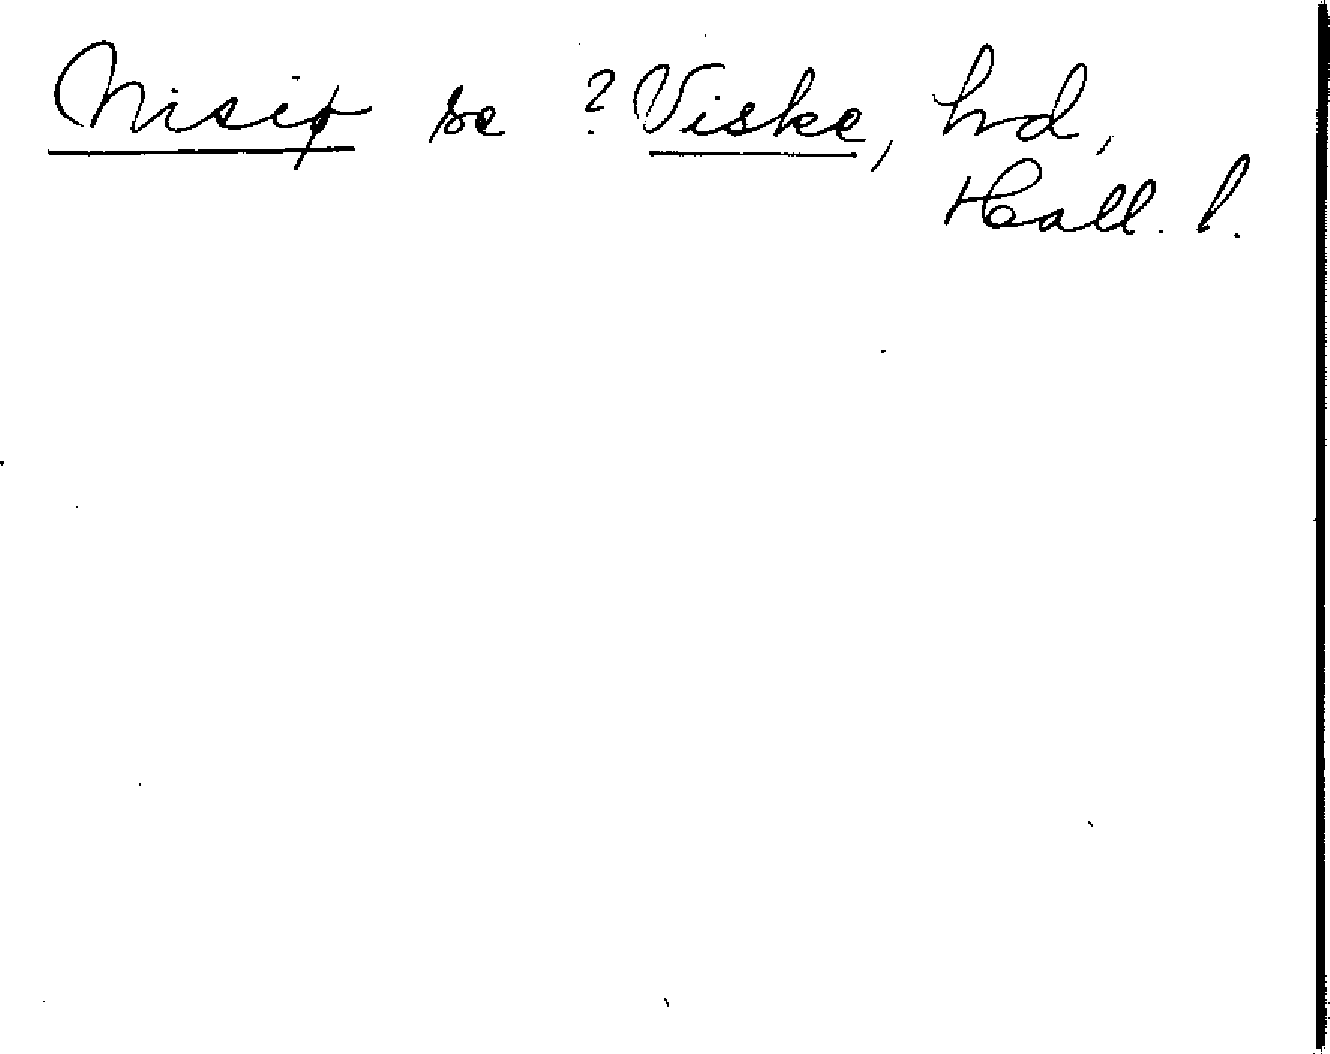 Nisiø se ? Viske, hd,
Hall. l.